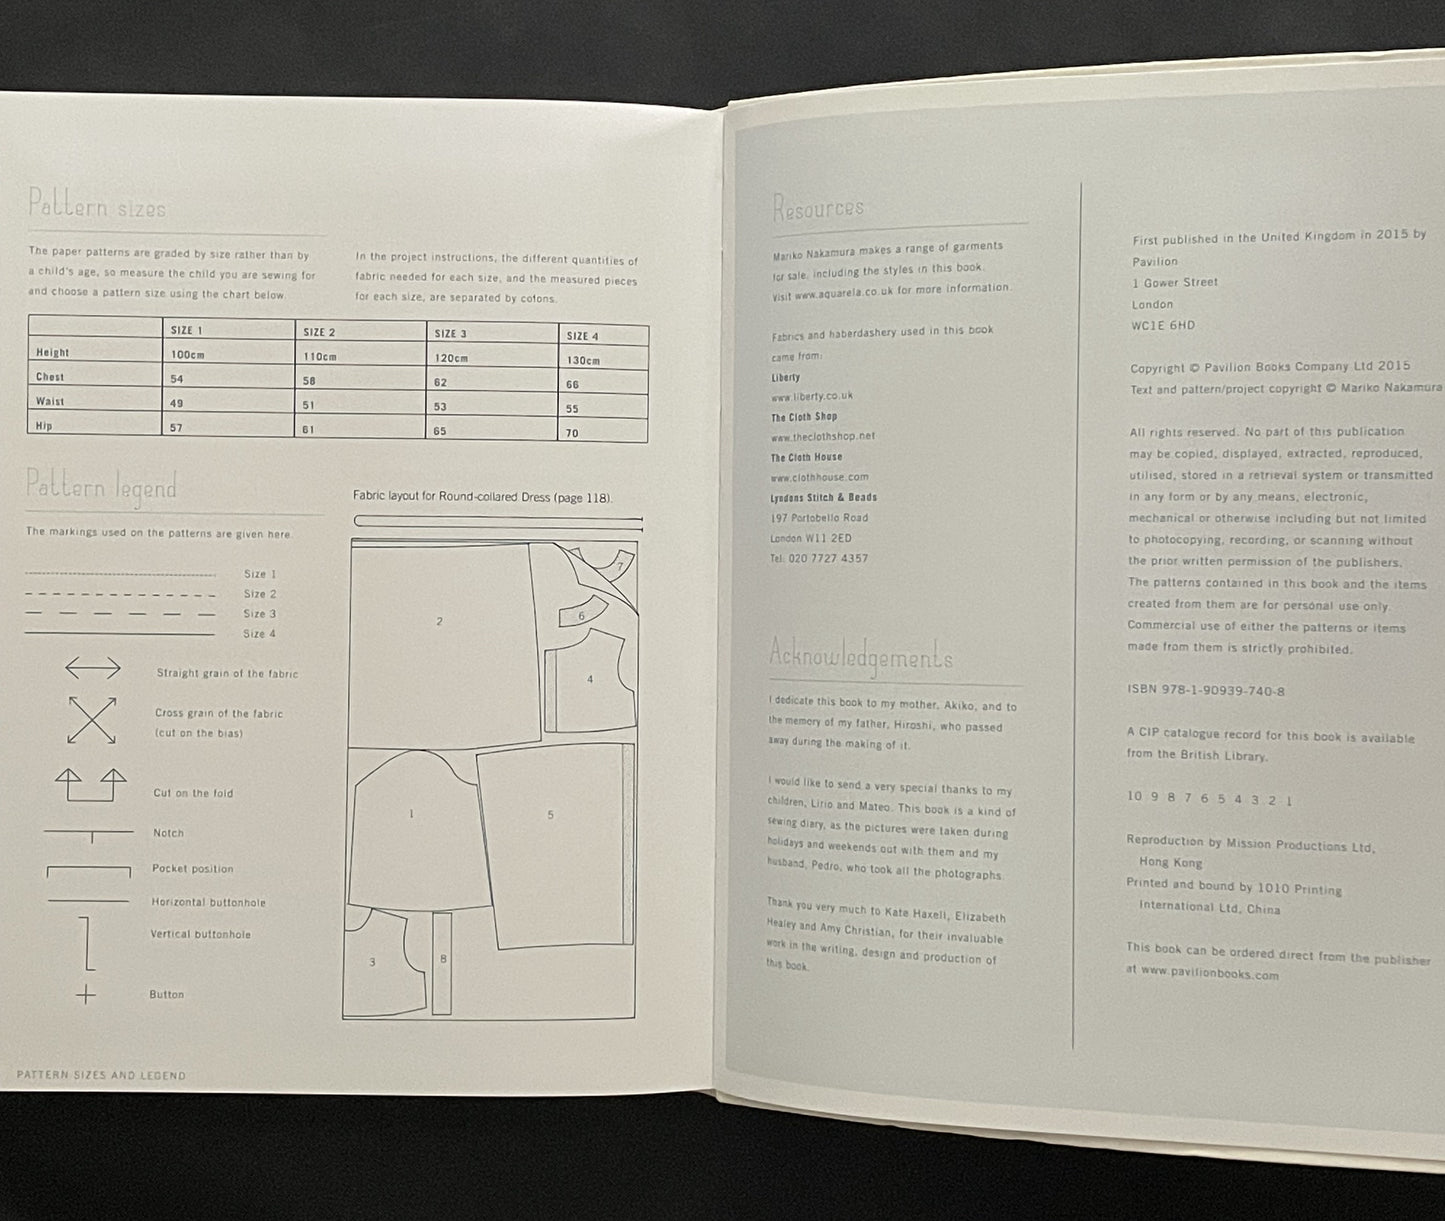 Pattern sizes
The paper patterns are graded by size rather than by
a child's age, so measure the child you are sewing for
and choose a pattern size using the chart below.
In the project instructions, the different quantities of
fabric needed for each size, and the measured pieces
for each size, are separated by colons.
SIZE 1 SIZE 2 SIZE 3 SIZE 4
Height 100cm 110cm 120cm 130cm
Chest 54 58 62 66
Waist 49 51 53 55
Hip 57 61 65 70
Pattern legend
The markings used on the patterns are given here.
Size 1
Size 2
Size 3
Size 4
Straight grain of the fabric
Cross grain of the fabric
(cut on the bias)
Cut on the fold
Notch
Pocket position
Horizontal buttonhole
Vertical buttonhole
Button
Fabric layout for Round-collared Dress (page 118).
7
2
6
4
1
5
3
8
PATTERN SIZES AND LEGEND
Resources
Mariko Nakamura makes a range of garments
for sale, including the styles in this book.
Visit www.aquarela.co.uk for more information.
Fabrics and haberdashery used in this book
came from:
Liberty
www.liberty.co.uk
The Cloth Shop
www.theclothshop.net
The Cloth House
www.clothhouse.com
Lyndons Stitch & Beads
197 Portobello Road
London W11 2ED
Tel: 020 7727 4357
Acknowledgements
I dedicate this book to my mother, Akiko, and to
the memory of my father, Hiroshi, who passed
away during the making of it.
I would like to send a very special thanks to my
children, Lirio and Mateo. This book is a kind of
sewing diary, as the pictures were taken during
holidays and weekends out with them and my
husband, Pedro, who took all the photographs.
Thank you very much to Kate Haxell, Elizabeth
Healey and Amy Christian, for their invaluable
work in the writing, design and production of
this book.
First published in the United Kingdom in 2015 by
Pavilion
1 Gower Street
London
WC1E 6HD
Copyright © Pavilion Books Company Ltd 2015
Text and pattern/project copyright © Mariko Nakamura
All rights reserved. No part of this publication
may be copied, displayed, extracted, reproduced,
utilised, stored in a retrieval system or transmitted
in any form or by any means, electronic,
mechanical or otherwise including but not limited
to photocopying, recording, or scanning without
the prior written permission of the publishers.
The patterns contained in this book and the items
created from them are for personal use only.
Commercial use of either the patterns or items
made from them is strictly prohibited.
ISBN 978-1-90939-740-8
A CIP catalogue record for this book is available
from the British Library.
10 9 8 7 6 5 4 3 2 1
Reproduction by Mission Productions Ltd,
Hong Kong
Printed and bound by 1010 Printing
International Ltd, China
This book can be ordered direct from the publisher
at www.pavilionbooks.com